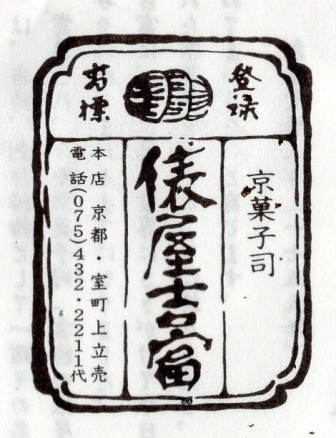 登録
商標
京菓子司
俵屋吉富
本店 京都・室町上立売
電話(075)432・2211代